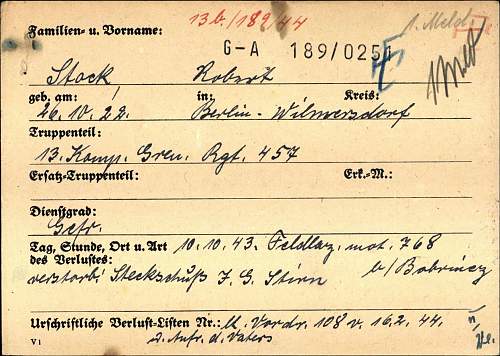 13b/189/44
1. Meld.
Familien- u. Vorname:
G-A 189/0251
Stock Robert
geb. am: in: Kreis:
26.10.22. Berlin-Wilmersdorf
Truppenteil:
13. Komp. Gren. Rgt. 457
Ersatz-Truppenteil: Erk.-M.:
Dienstgrad:
Gefr.
Tag, Stunde, Ort u. Art 10.10.43. Feldlaz. mot. 768
des Verlustes: b/Bobrinez
verstorb. Steckschuß I.G. Stirn
Urschriftliche Verlust-Listen Nr.: U. Vordr. 108 v. 16.2.44.
V1 s. Anfr. d. Vaters